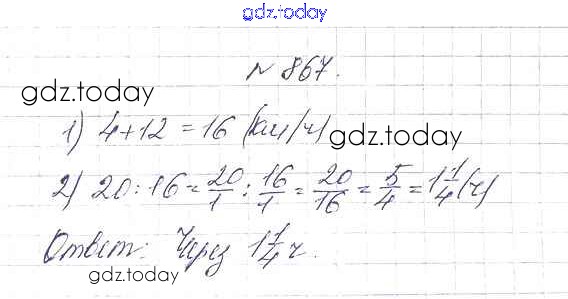 gdz.today
№ 867.
gdz.today
1) 4+12 = 16 (км/ч)
gdz.today
2) 20 : 16 = 20/1 : 16/1 = 20/16 = 5/4 = 1 1/4 (ч)
Ответ: Через 1 1/4 ч.
gdz.today